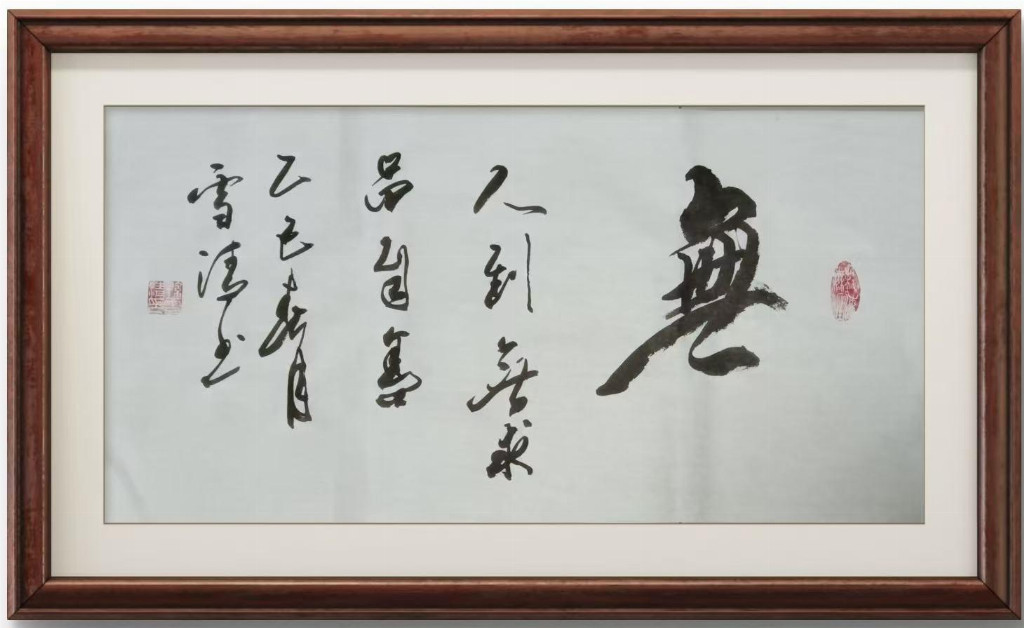 無
人到無求
品自高
乙巳春月
雪清书